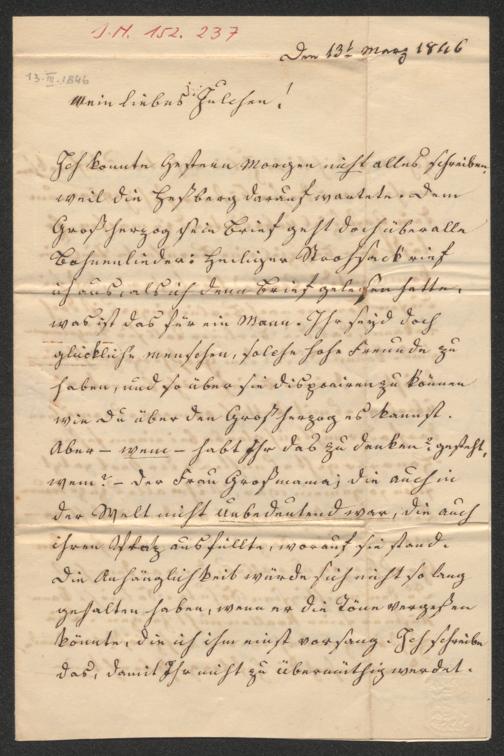 J.N. 152.237
Den 13t. März 1846
13.III.1846
Mein liebes Julchen!
Ich konnte Gestern Morgen nicht alles schreiben,
weil die Heßberg darauf wartete. Dem
Großherzog sein Brief geht doch über alle
Bohnenlieder: Heiliger Strohsack rief
ich aus, als ich denn Brief gelesen hatte,
was ist das für ein Mann. Ihr seyd doch
glückliche menschen, solche hohe Freunde zu
haben, und so über sie disposiren zu können
wie Du über den Großherzog es kannst.
Aber – wem – habt Ihr das zu denken? gesteht,
wem? – Der Frau Großmama; die auch in
der Welt nicht unbedeutend war, die auch
ihren Platz ausfüllte, worauf sie stand.
Die Anhänglichkeit würde sich nicht so lang
gehalten haben, wenn er die Töne vergeßen
könnte, die ich ihm einst vorsang. Ich schreibe
das, damit Ihr nicht zu übermüthig werdet.